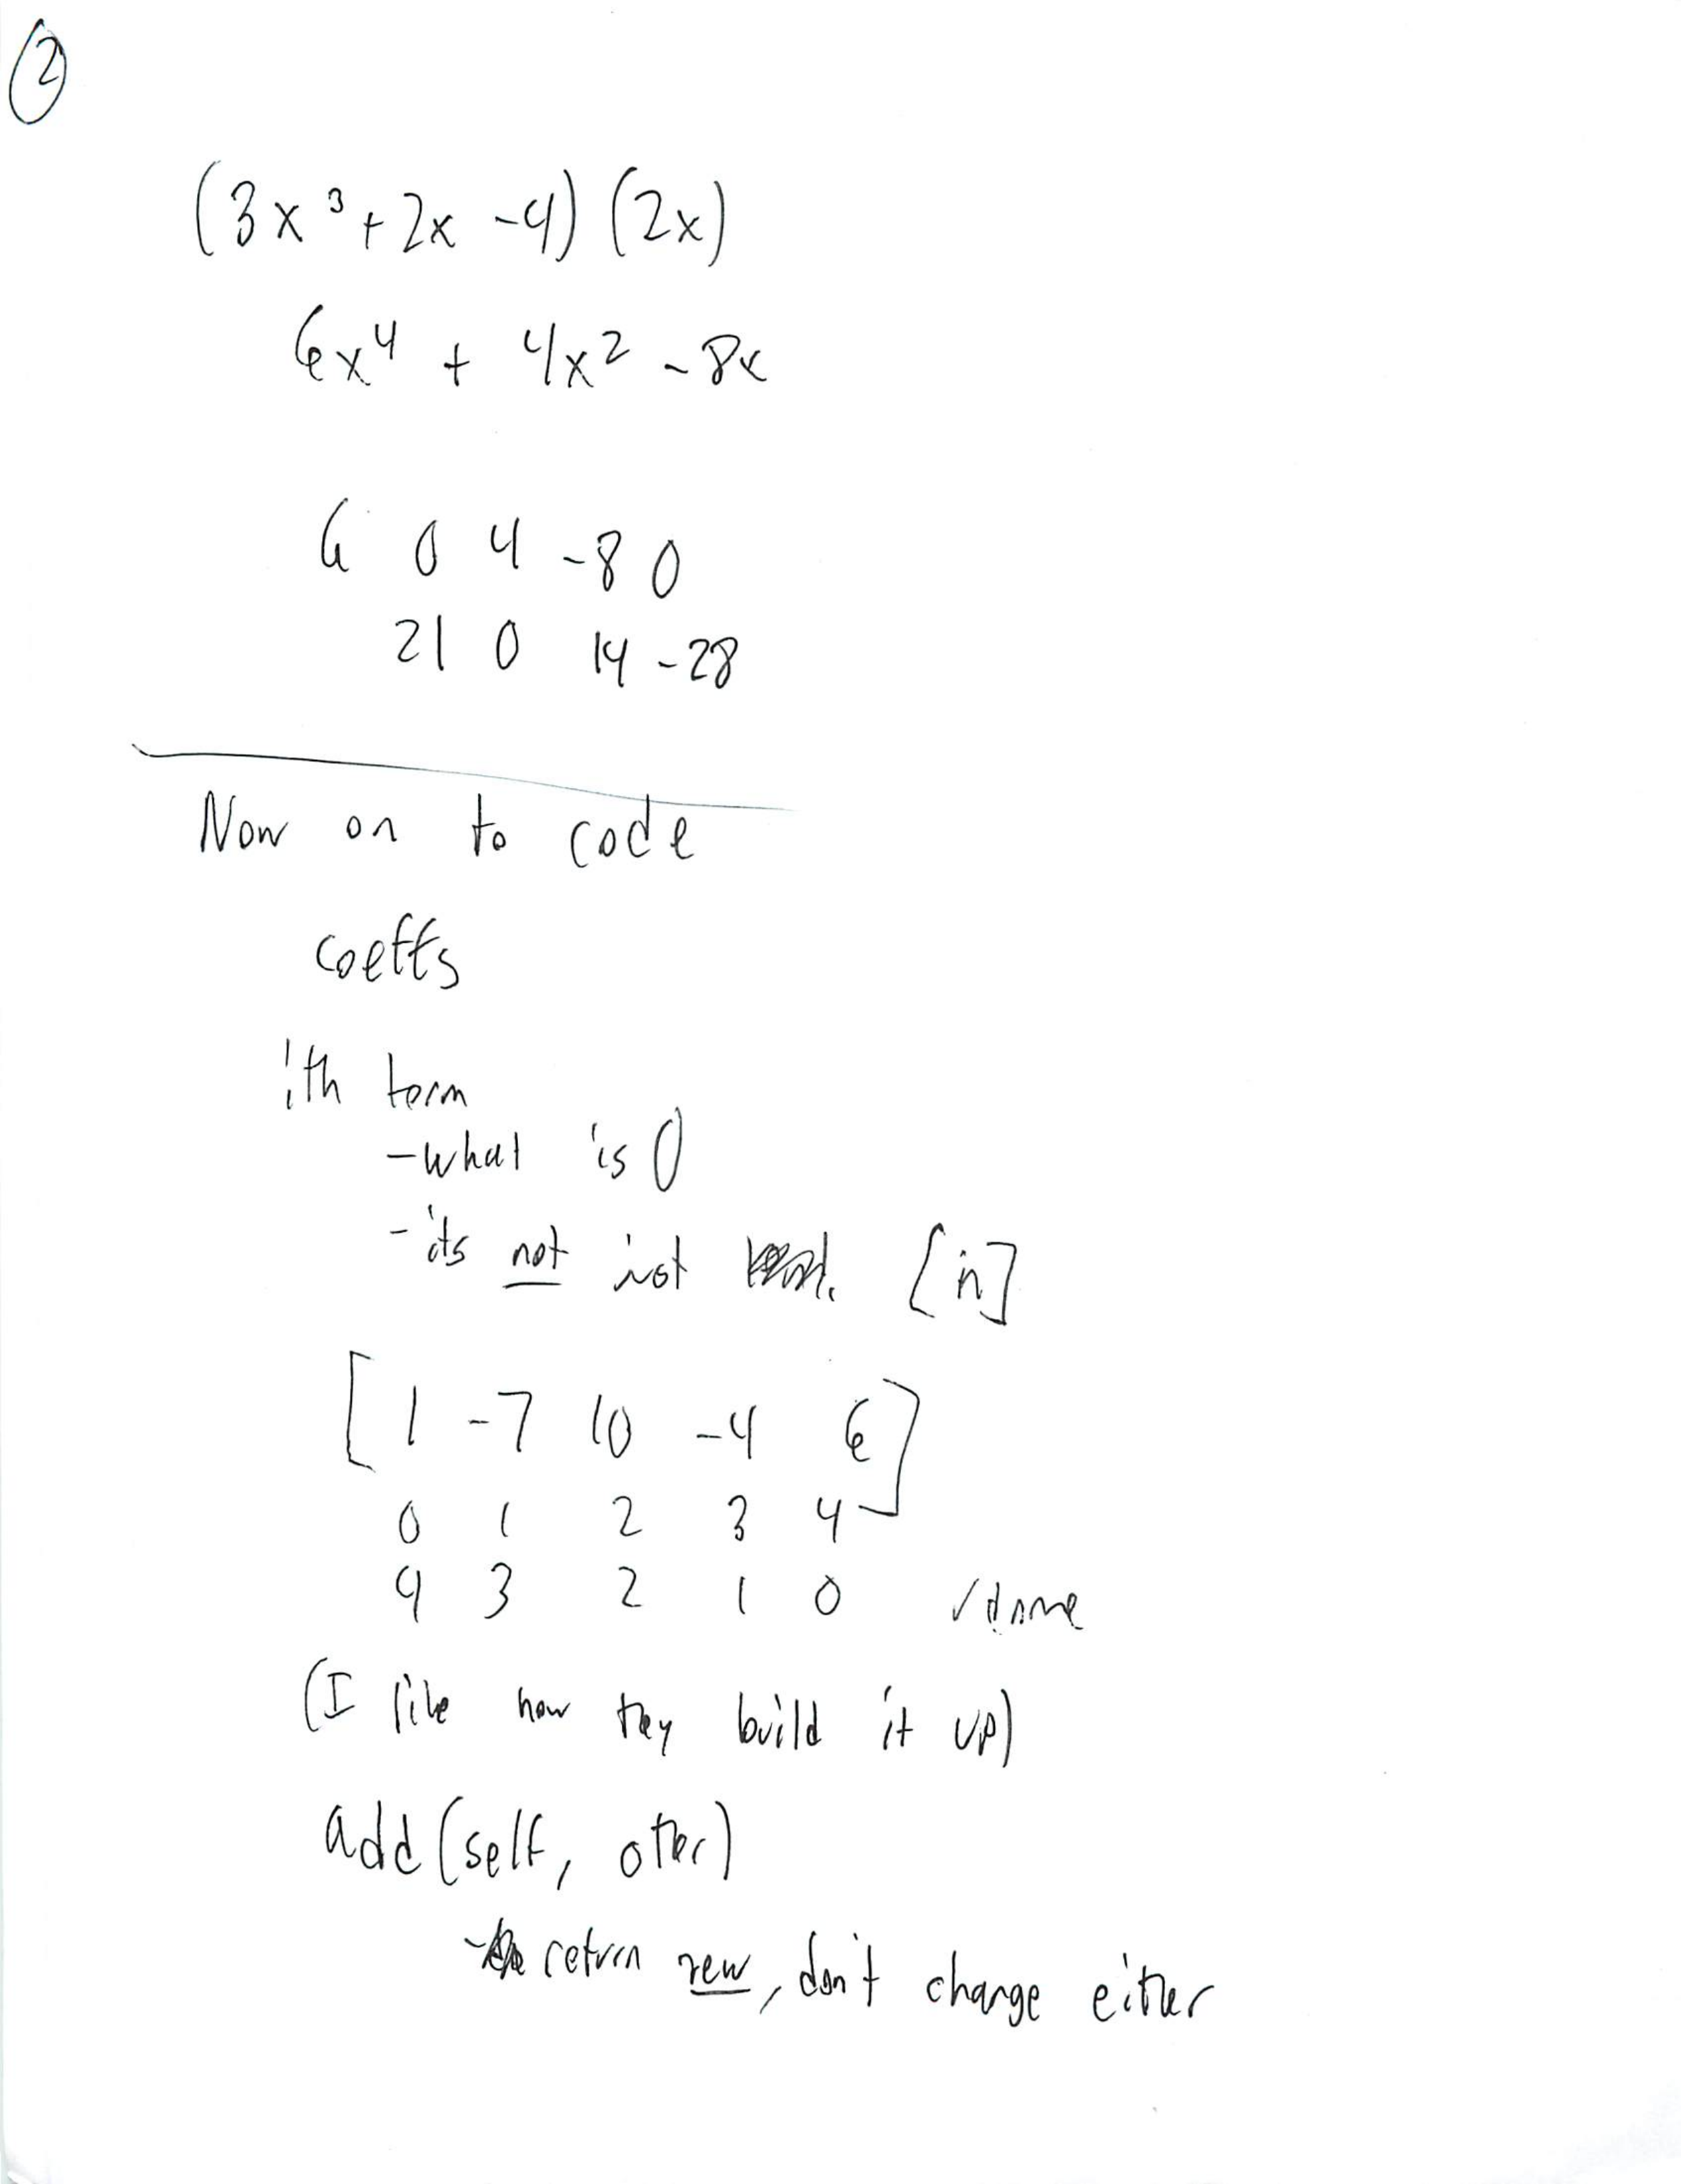 2
(3x³+2x -4) (2x)
6x⁴ + 4x² - 8x
6 0 4 -8 0
21 0 14 -28
Now on to code
coeffs
ith term
- what is 0
- its not just [n]
[1 -7 10 -4 6]
0 1 2 3 4
4 3 2 1 0 ✓done
(I like how they build it up)
add(self, other)
- return new, don't change either